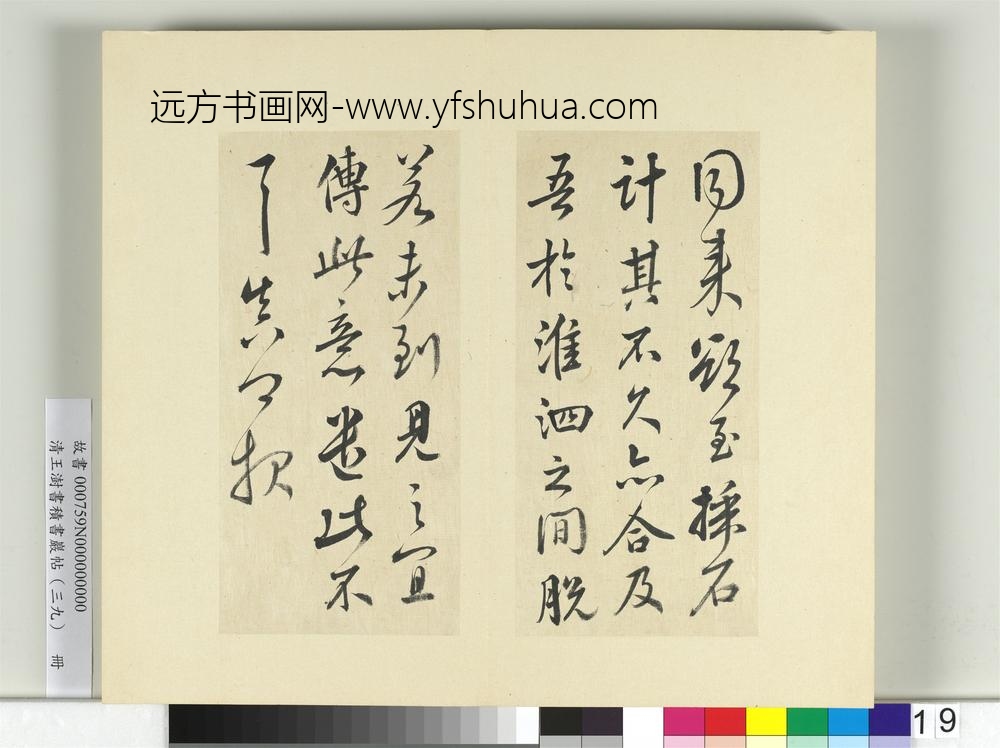 远方书画网-www.yfshuhua.com
同来欲至採石
计其不久亦合及
吾於淮泗之间脱
若未到见之宜
傅此意遣此不
了
报
故書 000759N000000000
清王澍書積書巖帖（三九） 冊
19